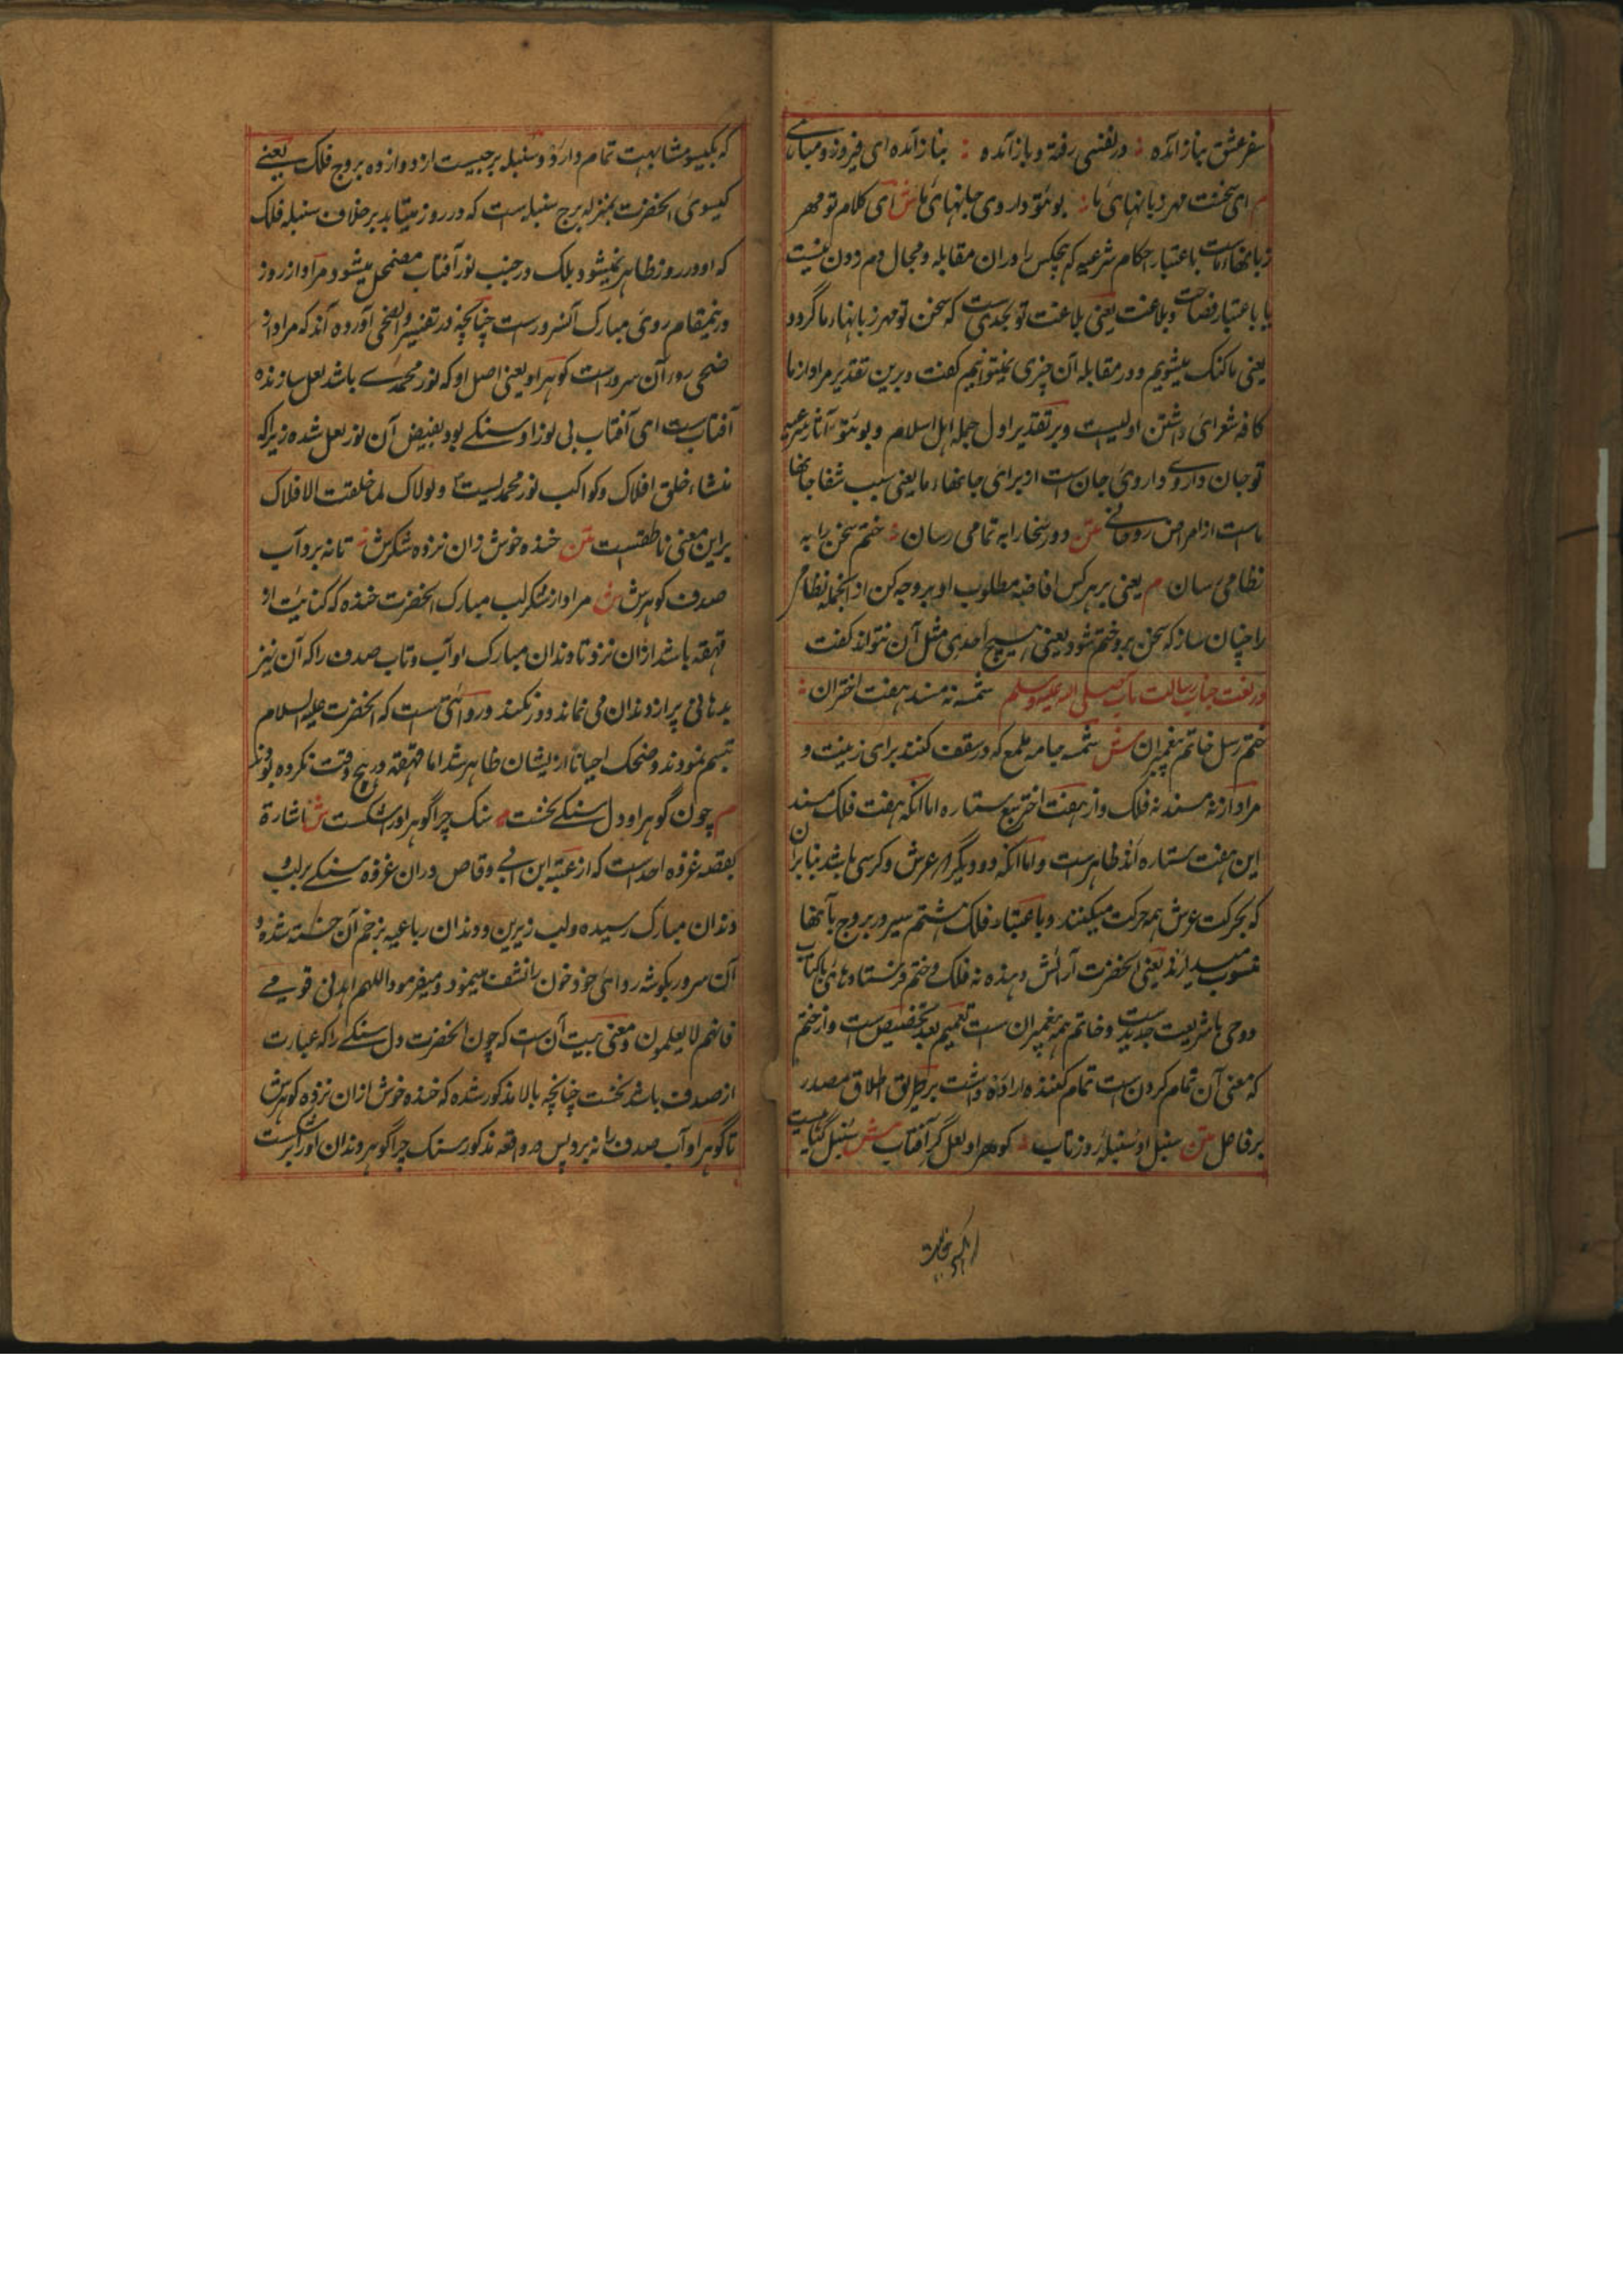 سفر عشق نیاز آمده ؛ در نفسی رفته و باز آمده ؛ نیاز آمده ای فیروز و مباهی
م ای سخنت مهر زبانهای ما ؛ بوئتو داروی جانهای ما ش ای کلام تو مهر
زبانهاء ماست باعتبار احکام شرعیه که هیچکس را دران مقابله و مجال دم زدن نیست
یا باعتبار فصاحت و بلاغت یعنی بلاغت تو بحدیست که سخن تو مهر زبانهاء ما گردد
یعنی ما کنک میشویم و در مقابله آن چیزی نمیتوانیم کفت و برین تقدیر مراد از ما
کافه شعرای داشتن اولیست و بر تقدیر اول جمله اهل اسلام و بوئتو آثار شرعیه
تو جان دارو داروی جان است از برای جانهاء ما یعنی سبب شفا جانها
ماست از امراض روحانی متن دور سخن را به تمامی رسان ؛ ختم سخن را به
نظامی رسان م یعنی بر هرکس افاضه مطلوب او بر وجه کن از انجمله نظامی
را چنان ساز که سخن برو ختم شود یعنی هیچ احدی مثل آن نتواند کفت
در نعت جناب رسالت مآب صلی الله علیه وسلم شمسه نه مسند هفت اختران ؛
ختم رسل خاتم پیغمبران ش شمسه جامه ملمع که در سقف کنند برای زینت و
مراد از نه مسند نه فلک و از هفت اختر سبع ستاره اما انکه هفت فلک مسند
این هفت ستاره اند ظاهر است و اما انکه دو دیگر از عرش و کرسی باشد بنا بران
که بحرکت عرش همه حرکت میکنند و باعتبار فلک هشتم سیر در بروج بآنها
منسوب میدارند یعنی انحضرت آرائش دهنده نه فلک و ختم فرستادهای با کتاب
و وحی با شریعت جدید است و خاتم همه پیغمبران است تعمیم بعد تخصیص است و از ختم
که معنی آن تمام کردن است تمام کننده اراده داشت بر طریق اطلاق مصدر
بر فاعل متن سنبل او سنبله روز تاب ؛ کوهر او لعل گر آفتاب ش سنبل گیاهیست
که بگیسو مشابهت تمام دارد و سنبله برجیست از دوازده بروج فلک یعنی
کیسوی انحضرت بمنزله برج سنبله است که در روز میتابد بر خلاف سنبله فلک
که او در روز ظاهر نمیشود بلک در جنب نور آفتاب مضمحل میشود و مراد از روز
درینمقام روی مبارک آنسرور است چنانچه در تفسیر والضحی آورده اند که مراد از
ضحی روز آن سرور است کوهر او یعنی اصل او که نور محمدی باشد لعل سازنده
آفتاب است ای آفتاب بی نور او سنکی بود بفیض آن نور لعل شده زیرا که
منشاء خلق افلاک و کواکب نور محمدیست و لولاک لما خلقت الافلاک
براین معنی ناطقست متن خنده خوش زان نزده شکرش ؛ تا نه برد آب
صدف کوهرش ش مراد از شکر لب مبارک انحضرت خنده که کنایت از
قهقهه باشد ازان نزد تا دندان مبارک او آب و تاب صدف را که آن نیز
بدهانی پر از دندان می ماند دور نکند و روایتی است که انحضرت علیه السلام
تبسم نمودند و ضحک احیانا از ایشان ظاهر شد اما قهقهه در هیچ وقت نکرده بودند
م چون گوهر او دل سنکی نخست ؛ سنک چرا گوهر او را شکست ش اشارة
بقصه غزوه احد است که از عتبه ابن ابی وقاص دران غزوه سنکی بر لب
دندان مبارک رسیده و لب زیرین و دندان رباعیه بزخم آن خسته شده و
آن سرور بکوشه ردای خود خون را نشف مینمود و میفرمود اللهم اهد قومی
فانهم لا یعلمون و معنی بیت آن است که چون انحضرت دل سنکی را که عبارت
از صدف باشد نخست چنانچه بالا مذکور شده که خنده خوش ازان نزده کوهرش
تا گوهر او آب صدف را نه برد پس در واقعه مذکور سنک چرا گوهر دندان او را شکست